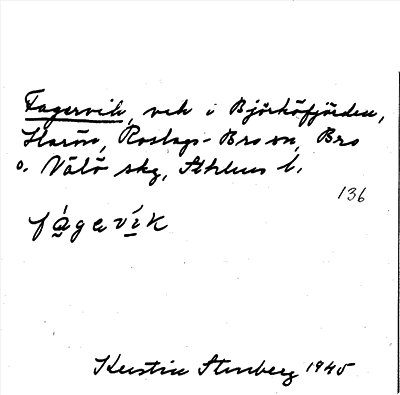 Fagervik, vik i Björköfjärden,
Harön, Roslags-Bro sn, Bro
o. Väló skg, Sthlms l.
136
fágevík
Kerstin Stenberg 1945